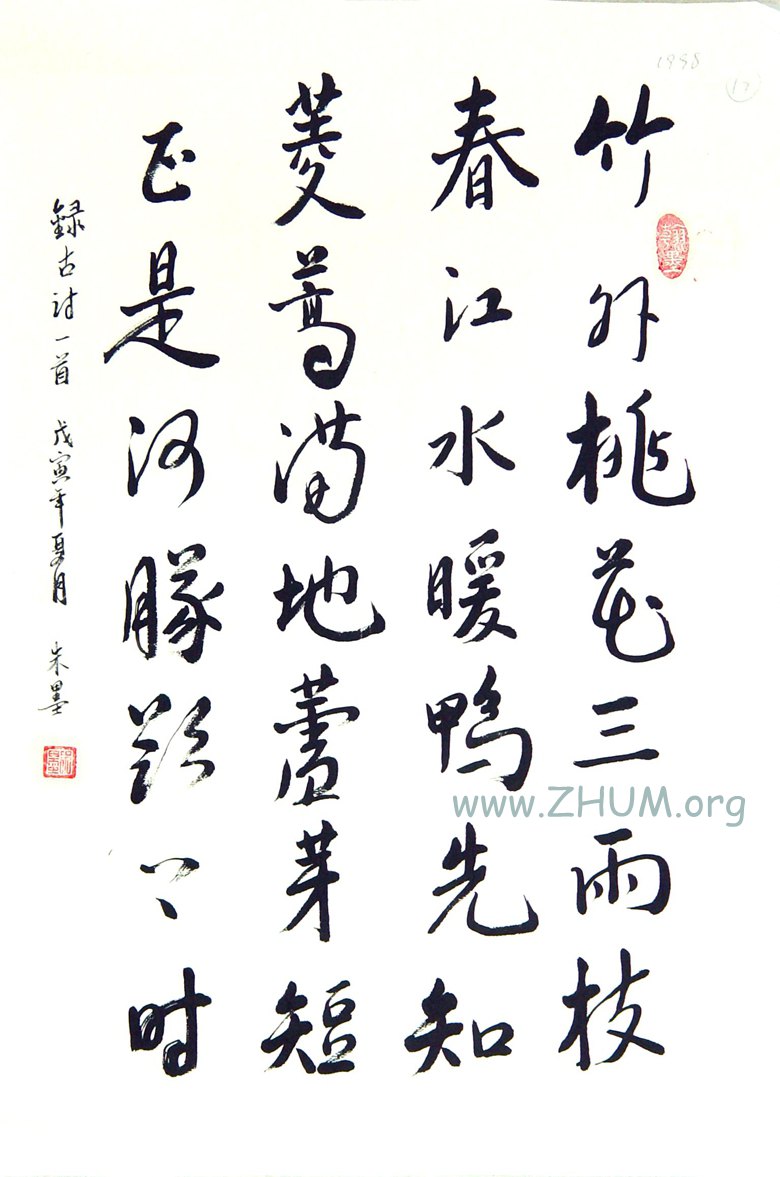 1998
17
竹外桃花三兩枝
春江水暖鴨先知
蔞蒿满地蘆芽短
正是河豚欲上时
録古詩一首 戊寅年夏月 朱墨
www.ZHUM.org